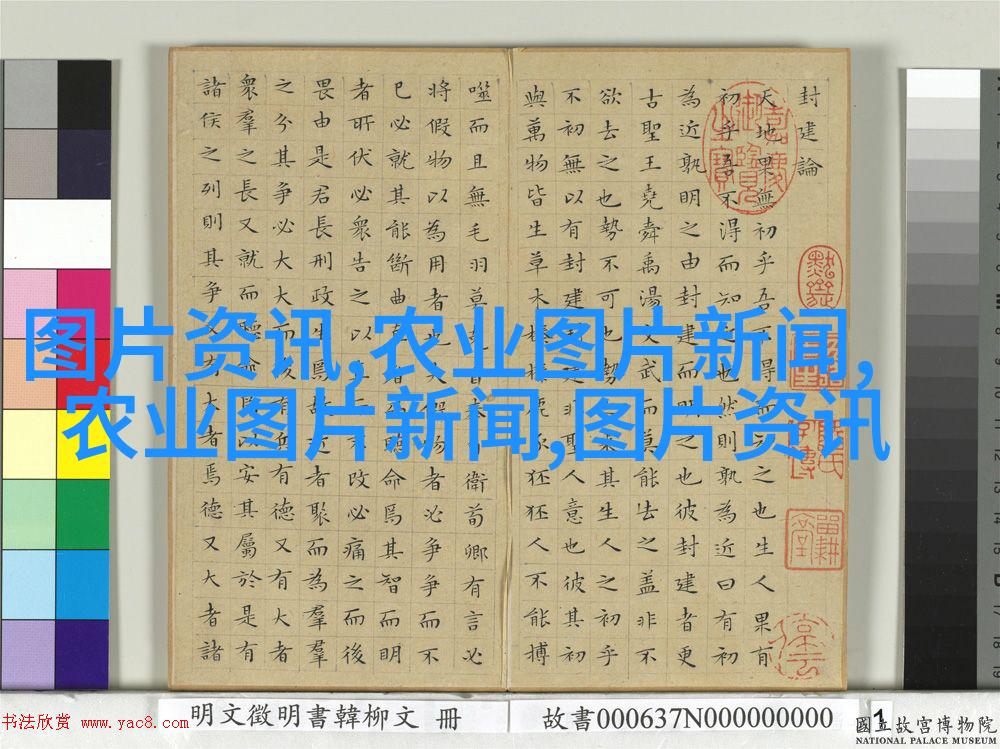 封建論
天地果無初乎吾不得而知之也生人果有
初乎吾不得而知之也然則孰為近曰有初
為近孰明之由封建而明之也彼封建者更
古聖王堯舜禹湯文武而莫能去之蓋非不
欲去之也勢不可也勢之來其生人之初乎
不初無以有封建封建非聖人意也彼其初
與萬物皆生草木榛榛鹿豕狉狉人不能搏
噬而且無毛羽莫克自奉自衛荀卿有言必
將假物以為用者也夫假物者必爭爭而不
已必就其能斷曲直者而聽命焉其智而明
者所伏必衆告之以直而不改必痛之而後
畏由是君長刑政生焉故近者聚而為羣
之分其爭必大大而後有兵有德又有大者
衆羣之長又就而聽命焉以安其屬於是有
諸侯之列則其爭又有大者焉德又大者諸
图片资讯,农业图片新闻,
农业图片新闻,图片资讯
書法欣赏 www.yac8.com
明文徵明書韓柳文 冊
故書000637N000000000
1
國立故宮博物院
NATIONAL PALACE MUSEUM